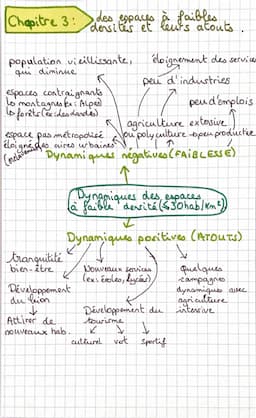 Chapitre 3 : des espaces à faibles
densités et leurs atouts.
population vieillissante,
qui diminue
éloignement des services
peu d'industries
espaces contraignants
la montagne (ex: Alpes)
peu d'emplois
agriculture extensive
espace pas métropolisé
éloigné des aires urbaines
ou polyculture peu productive
Dynamiques négatives (FAIBLESSE)
Dynamiques des espaces
à faible densité (≤30hab/km²)
Dynamiques positives (ATOUTS)
tranquillité
bien-être
Nouveaux services
(ex: écoles, lycée)
Quelques
campagnes
dynamiques avec
agriculture
intensive
Développement
du lien
Développement du
tourisme
Attirer de
nouveaux hab.
culturel vert sportif